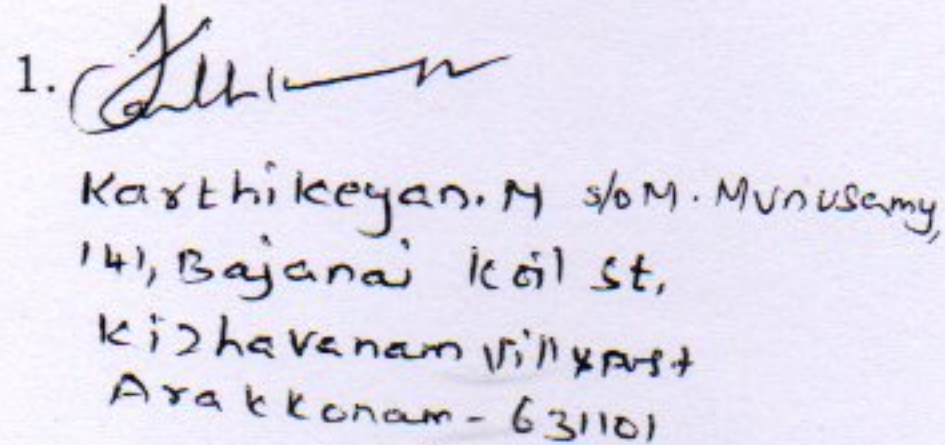 1.
Karthikeyan.M s/o M. Munusamy,
141, Bajanai Koil St,
Kizhavanam Vill & Post
Arakkonam - 631101